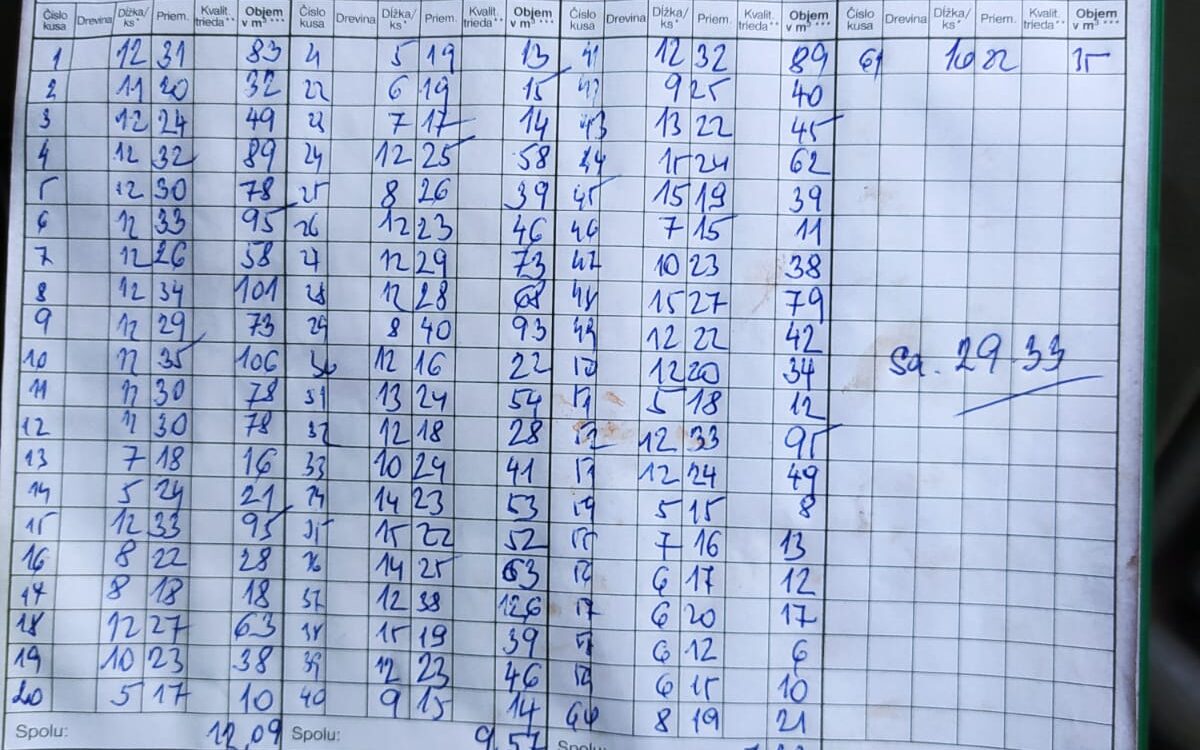 Číslo kusa Drevina Dĺžka/ks* Priem. Kvalit. trieda** Objem v m³*** Číslo kusa Drevina Dĺžka/ks* Priem. Kvalit. trieda** Objem v m³*** Číslo kusa Drevina Dĺžka/ks* Priem. Kvalit. trieda** Objem v m³*** Číslo kusa Drevina Dĺžka/ks* Priem. Kvalit. trieda** Objem v m³***
1 12 31 83 21 5 19 13 41 12 32 89 61 10 22 35
2 11 20 32 22 6 19 15 42 9 25 40
3 12 24 49 23 7 17 14 43 13 22 45
4 12 32 89 24 12 25 58 44 15 24 62
5 12 30 78 25 8 26 39 45 15 19 39
6 12 33 95 26 12 23 46 46 7 15 11
7 12 26 58 27 12 29 73 47 10 23 38
8 12 34 101 28 12 28 68 48 15 27 79
9 12 29 73 29 8 40 93 49 12 22 42
10 12 35 106 30 12 16 22 50 12 20 34
11 12 30 78 31 13 24 54 51 5 18 12
12 12 30 78 32 12 18 28 52 12 33 95
13 7 18 16 33 10 24 41 53 12 24 49
14 5 24 21 34 14 23 53 54 5 15 8
15 12 33 95 35 15 22 52 55 7 16 13
16 8 22 28 36 14 25 63 56 6 17 12
17 8 18 18 37 12 38 126 57 6 20 17
18 12 27 63 38 15 19 39 58 6 12 6
19 10 23 38 39 12 23 46 59 6 15 10
20 5 17 10 40 9 15 14 60 8 19 21
Sa. 29.33
Spolu: 12,09 Spolu: 9,57 Spolu: